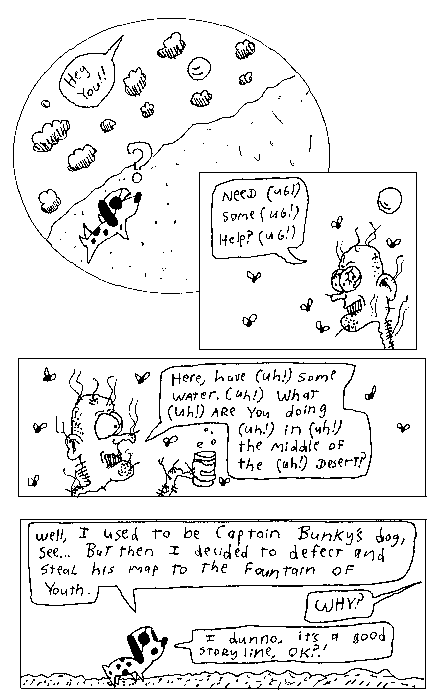 Hey
You!!
?
Need (ug!)
some (ug!)
Help? (ug!)
Here, have (uh!) some
water. (uh!) What
(uh!) are you doing
(uh!) in (uh!)
the middle of
the (uh!) Desert?
Well, I used to be Captain Bunky's dog,
see... But then I decided to defect and
steal his map to the Fountain of
Youth.
WHY?
I dunno, it's a good
story line, OK?!